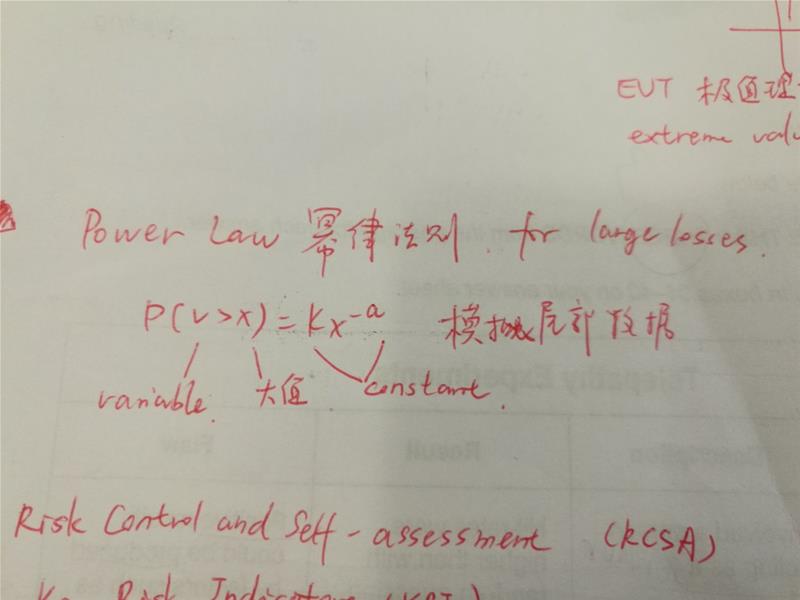 EVT 极值理
extreme valu
Power Law 幂律法则. for large losses.
P(v>x)=Kx^-a 模拟尾部数据
variable. 大值 constant.
Risk Control and Self-assessment (RCSA)
Risk Indicators (KRI)